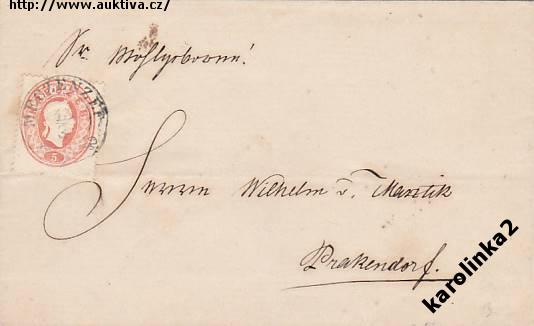 http://www.auktiva.cz/
Sr Wohlgeboren!
METZENZEF
5
Herrn Wilhelm v. Mantik
Prakendorf.
karolinka2